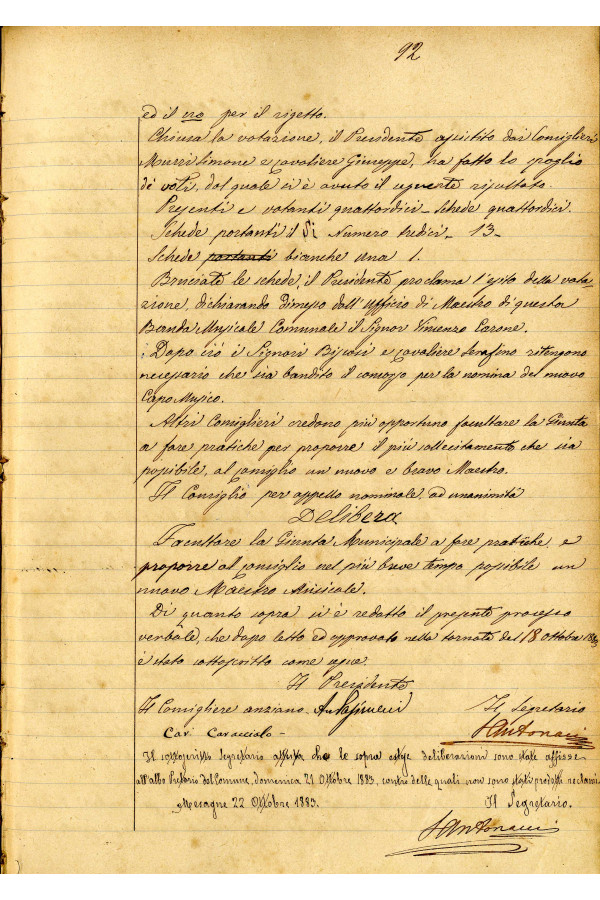 92
ed il no per il rigetto.
Chiusa la votazione, il Presidente assistito dai Consiglieri
Murri Simone e Cavaliere Giuseppe, ha fatto lo spoglio
de' voti, dal quale si è avuto il seguente risultato.
Presenti e votanti quattordici - schede quattordici.
Schede portanti il Si Numero tredici - 13 -
Schede portanti bianche una 1.
Bruciate le schede, il Presidente proclama l'esito della vota-
zione, dichiarando dimesso dall'Ufficio di Maestro di questa
Banda Musicale Comunale il Signor Vincenzo Carone.
Dopo ciò i Signori Biscosi e Cavaliere Serafino ritengono
necessario che sia bandito il concorso per la nomina del nuovo
Capo Musico.
Altri Consiglieri credono più opportuno facultare la Giunta
a fare pratiche per proporre il più sollecitamente che sia
possibile, al Consiglio un nuovo e bravo Maestro.
Il Consiglio per appello nominale, ad unanimità
Delibera
Facultare la Giunta Municipale a fare pratiche, e
proporre al Consiglio nel più breve tempo possibile un
nuovo Maestro Musicale.
Di quanto sopra si è redatto il presente processo
verbale, che dopo letto ed approvato nella tornata del 18 Ottobre 1883
è stato sottoscritto come segue.
Il Presidente
Il Consigliere anziano Il Segretario
Cav. Caracciolo - S Antonucci
Il sottoscritto Segretario attesta che le sopra estese deliberazioni sono state affisse
all'albo Pretorio del Comune, domenica 21 Ottobre 1883, contro delle quali non sono stati prodotti reclami.
Mesagne 22 Ottobre 1883. Il Segretario.
S Antonucci